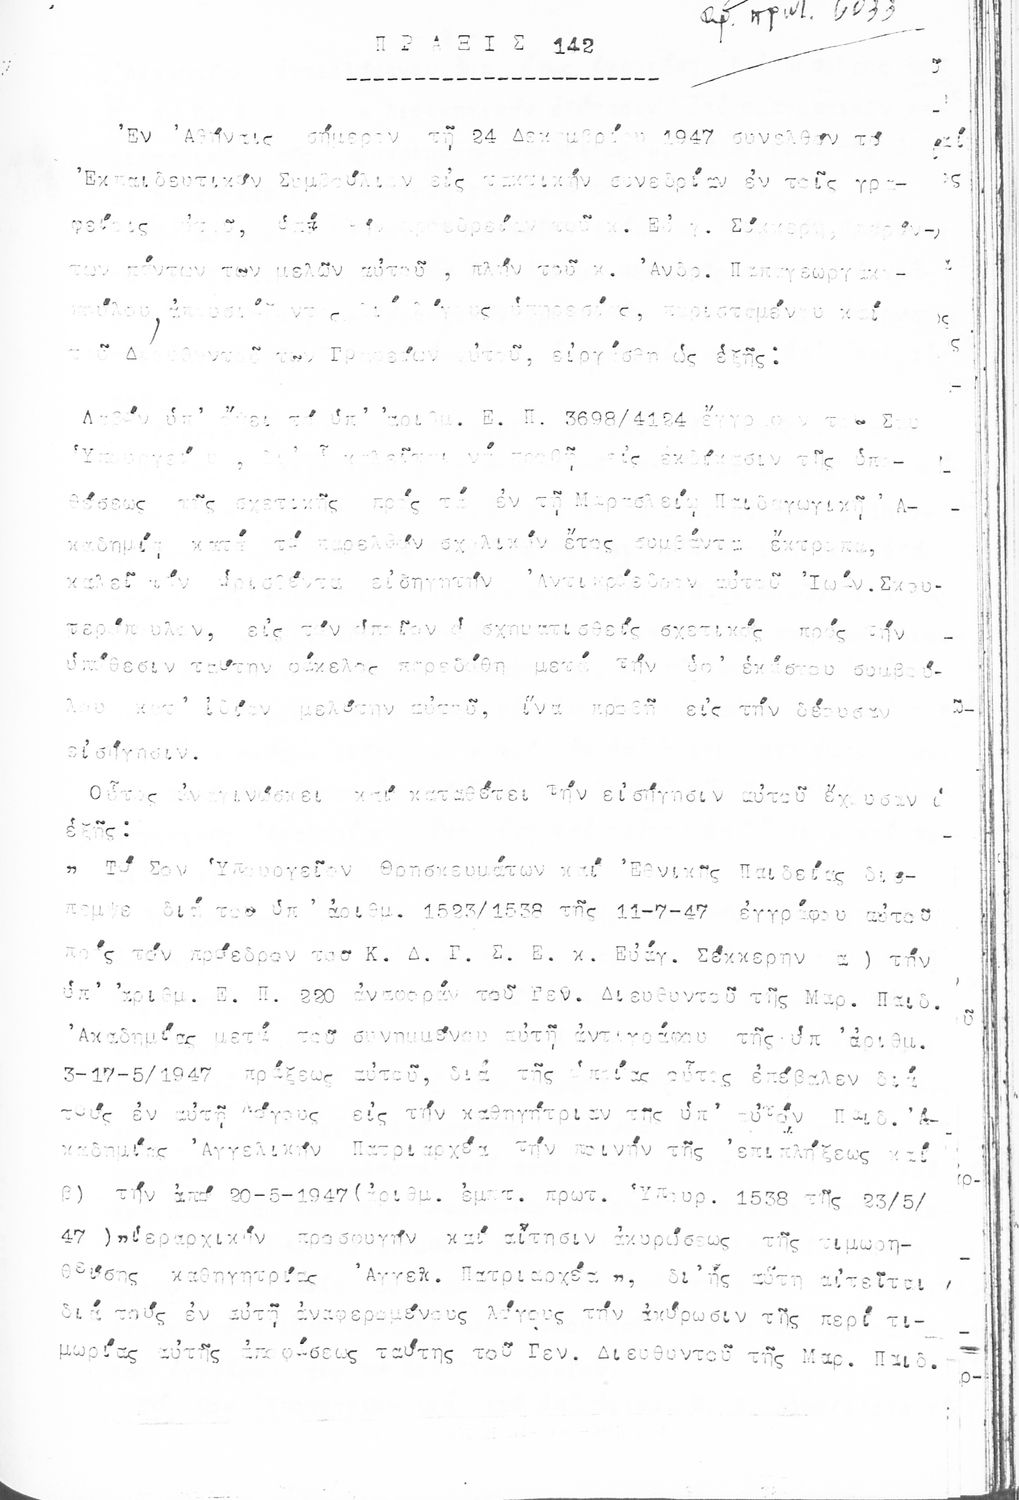 αρ. πρωτ. 6033
ΠΡΑΞΙΣ 142
Ἐν Ἀθήναις σήμερον τῇ 24 Δεκεμβρίου 1947 συνελθόν τό
Ἐκπαιδευτικόν Συμβούλιον εἰς τακτικήν συνεδρίαν ἐν τοῖς γρα-
φείοις αὐτοῦ, ὑπό τήν προεδρείαν τοῦ κ. Εὐαγ. Σέκκερη, παρόν-
των πάντων των μελῶν αὐτοῦ, πλήν τοῦ κ. Ἀνδρ. Παπαγεωργακο-
πούλου, ἀπουσιάζοντος διά λόγους ὑπηρεσίας, παρισταμένου καί
τοῦ Διευθυντοῦ των Γραφείων αὐτοῦ, εἰργάσθη ὡς ἑξῆς:
Λαβόν ὑπ' ὄψει τό ὑπ' ἀριθμ. Ε. Π. 3698/4124 ἔγγραφον του Σου
Ὑπουργείου, δι' οὗ καλεῖται νά προβῇ εἰς ἐκδίκασιν τῆς ὑπο-
θέσεως τῆς σχετικῆς πρός τά ἐν τῇ Μαρασλείῳ Παιδαγωγικῇ Ἀ-
καδημίᾳ κατά τό παρελθόν σχολικόν ἔτος συμβάντα ἔκτροπα,
καλεῖ τόν ὁρισθέντα εἰσηγητήν Ἀντιπρόεδρον αὐτοῦ Ἰωάν. Σκου-
τερόπουλον, εἰς τόν ὁποῖον ὁ σχηματισθείς σχετικός πρός τήν
ὑπόθεσιν ταύτην φάκελος παρεδόθη μετά τήν ὑφ' ἑκάστου συμβού-
λου κατ' ἰδίαν μελέτην αὐτοῦ, ἵνα προβῇ εἰς τήν δέουσαν
εἰσήγησιν.
Οὗτος ἀναγινώσκει καί καταθέτει τήν εἰσήγησιν αὐτοῦ ἔχουσαν ὡς
ἑξῆς:
" Τό Σον Ὑπουργεῖον Θρησκευμάτων καί Ἐθνικῆς Παιδείας διε-
πεμψε διά του ὑπ' ἀριθμ. 1523/1538 τῆς 11-7-47 ἐγγράφου αὐτοῦ
πρός τόν πρόεδρον του Κ. Δ. Γ. Σ. Ε. κ. Εὐάγ. Σέκκερην α ) τήν
ὑπ' ἀριθμ. Ε. Π. 220 ἀναφοράν τοῦ Γεν. Διευθυντοῦ τῆς Μαρ. Παιδ.
Ἀκαδημίας μετά του συνημμένου αὐτῇ ἀντιγράφου τῆς ὑπ' ἀριθμ.
3-17-5/1947 πράξεως αὐτοῦ, διά τῆς ὁποίας οὗτος ἐπέβαλεν διά
τούς ἐν αὐτῇ λόγους εἰς τήν καθηγήτριαν τῆς ὑπ' αὐτόν Παιδ. Ἀ-
καδημίας Ἀγγελικήν Πατριαρχέα τήν ποινήν τῆς ἐπιπλήξεως καί
β) τήν ἀπό 20-5-1947(ἀριθμ. ἐμπ. πρωτ. Ὑπουρ. 1538 τῆς 23/5/
47 )"ἱεραρχικήν προσφυγήν καί αἴτησιν ἀκυρώσεως τῆς τιμωρη-
θείσης καθηγητρίας Ἀγγελ. Πατριαρχέα ", δι' ἧς αὕτη αἰτεῖται
διά τούς ἐν αὐτῇ ἀναφερομένους λόγους τήν ἀκύρωσιν τῆς περί τι-
μωρίας αὐτῆς ἀποφάσεως ταύτης τοῦ Γεν. Διευθυντοῦ τῆς Μαρ. Παιδ.